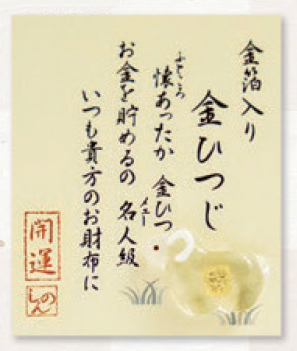 金箔入り
金ひつじ
ふところ
懐あったか 金ひつ
メェー
お金を貯めるの 名人級
いつも貴方のお財布に
開運
のん